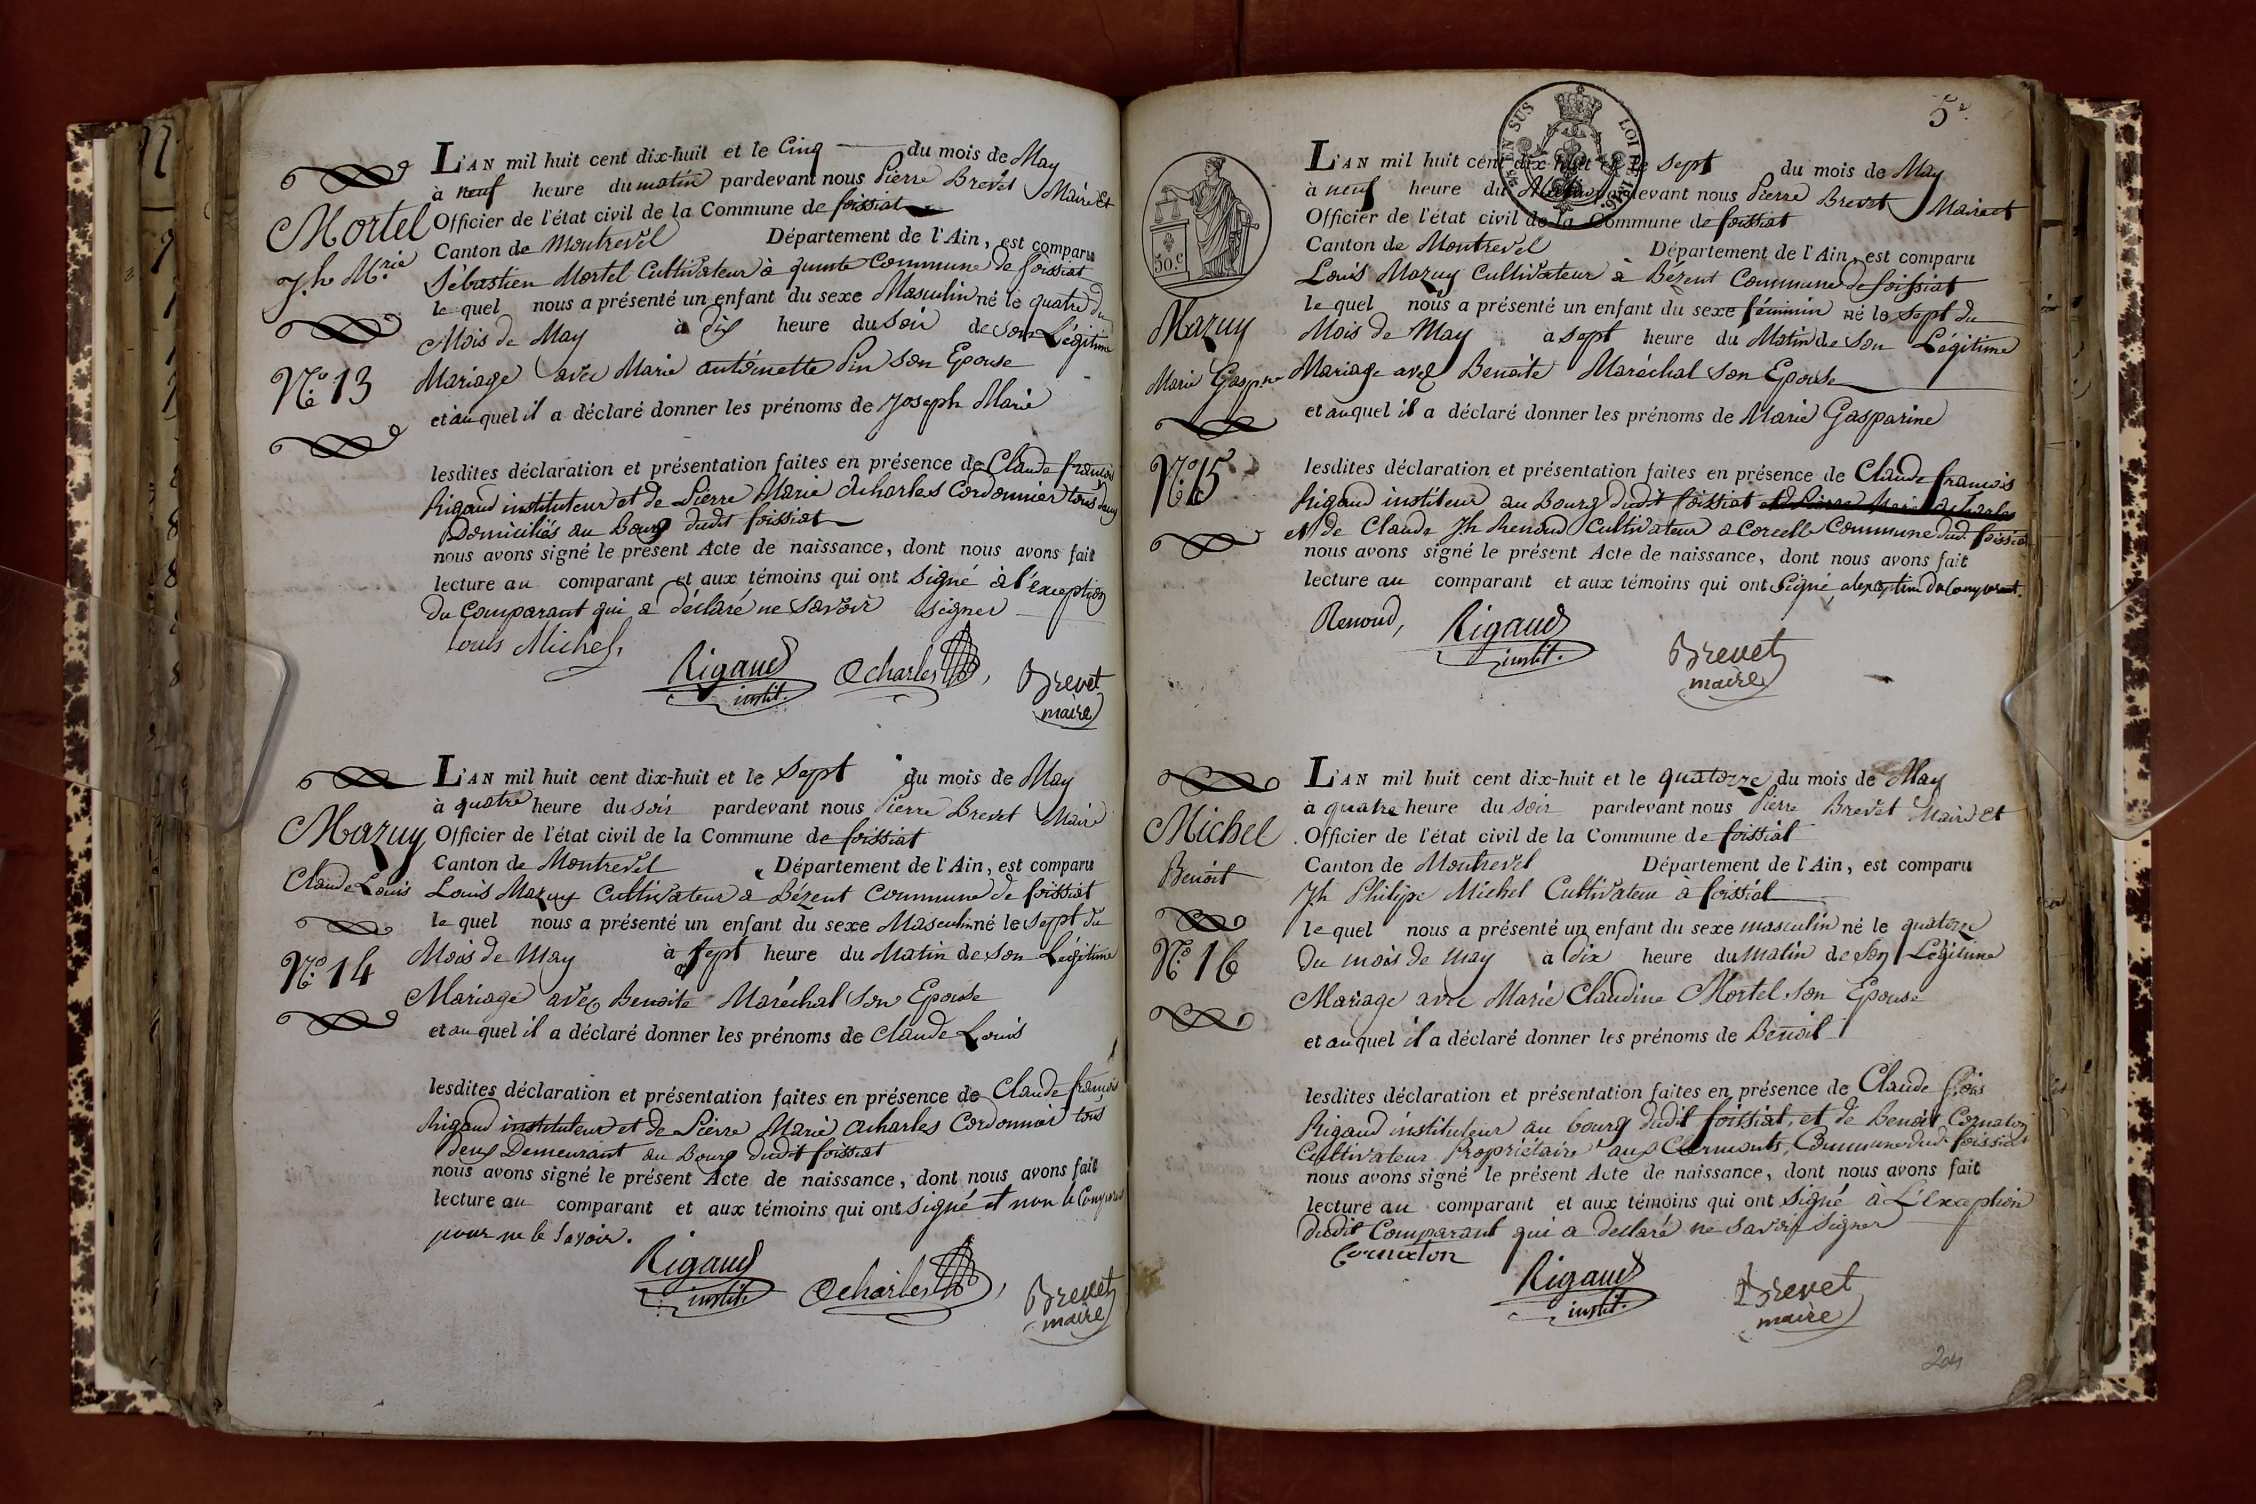 L'AN mil huit cent dix-huit et le Cinq du mois de May
à neuf heure du matin pardevant nous Pierre Brevet Maire et
Officier de l'état civil de la Commune de foissiat
Canton de Montrevel Département de l'Ain, est comparu
Sébastien Mortel Cultivateur à Commune de foissiat
le quel nous a présenté un enfant du sexe Masculin né le quatre du
Mois de May à dix heure du soir de son Légitime
Mariage avec Marie antoinette Pin son Epouse
et auquel il a déclaré donner les prénoms de Joseph Marie
lesdites déclaration et présentation faites en présence de Claude françois
Rigaud instituteur et de Pierre Marie Acharles Cordonnier tous deux
Domiciliés au Bourg dudit foissiat
nous avons signé le présent Acte de naissance, dont nous avons fait
lecture au comparant et aux témoins qui ont signé à l'exception
du Comparant qui a déclaré ne savoir signer
Louis Michel,
Rigaud
instit.
Acharles
Brevet
maire
Mortel
Jh M.rie
N.o 13
L'AN mil huit cent dix-huit et le Sept du mois de May
à quatre heure du soir pardevant nous Pierre Brevet Maire
Officier de l'état civil de la Commune de foissiat
Canton de Montrevel Département de l'Ain, est comparu
Louis Mazuy Cultivateur a Bézent Commune de foissiat
le quel nous a présenté un enfant du sexe Masculin né le sept du
Mois de May à sept heure du Matin de son Légitime
Mariage avec Benoite Maréchal son Epouse
et au quel il a déclaré donner les prénoms de Claude Louis
lesdites déclaration et présentation faites en présence de Claude françois
Rigaud instituteur et de Pierre Marie Acharles Cordonnier tous
deux Demeurant au Bourg dudit foissiat
nous avons signé le présent Acte de naissance, dont nous avons fait
lecture au comparant et aux témoins qui ont signé et non le Comparant
pour ne le savoir.
Rigaud
instit.
Acharles
Brevet
maire
Mazuy
Claude Louis
N.o 14
5e.
EN SUS LOI
50.c
L'AN mil huit cent dix-huit et le sept du mois de May
à neuf heure du Matin pardevant nous Pierre Brevet Maire et
Officier de l'état civil de la Commune de foissiat
Canton de Montrevel Département de l'Ain, est comparu
Louis Mazuy Cultivateur à Bézent Commune de foissiat
le quel nous a présenté un enfant du sexe féminin né le sept du
Mois de May a sept heure du Matin de son Légitime
Mariage avec Benoite Maréchal son Epouse
et auquel il a déclaré donner les prénoms de Marie Gasparine
lesdites déclaration et présentation faites en présence de Claude françois
Rigaud instituteur au Bourg dudit foissiat et de Pierre Marie Acharles
et de Claude Jh Renoud Cultivateur a Corcelle Commune dud. foissiat
nous avons signé le présent Acte de naissance, dont nous avons fait
lecture au comparant et aux témoins qui ont signé, a l'exception du Comparant.
Renoud,
Rigaud
instit.
Brevet
maire
Mazuy
Marie Gasp.ne
N.o 15
L'AN mil huit cent dix-huit et le quatorze du mois de May
à quatre heure du soir pardevant nous Pierre Brevet Maire et
Officier de l'état civil de la Commune de foissiat
Canton de Montrevel Département de l'Ain, est comparu
Jh Philipe Michel Cultivateur a foissiat
le quel nous a présenté un enfant du sexe masculin né le quatorze
du mois de May à dix heure du matin de son Légitime
Mariage avec Marie Claudine Mortel son Epouse
et auquel il a déclaré donner les prénoms de Benoit
lesdites déclaration et présentation faites en présence de Claude f.cois
Rigaud instituteur au bourg dudit foissiat, et de Benoit Cornaton
Cultivateur Propriétaire aux Clermonts, Commune dud. foissiat
nous avons signé le présent Acte de naissance, dont nous avons fait
lecture au comparant et aux témoins qui ont signé à L'exception
dudit Comparant qui a déclaré ne savoir signer
Cornaton
Rigaud
instit.
Brevet
maire
Michel
Benoit
N.o 16
204